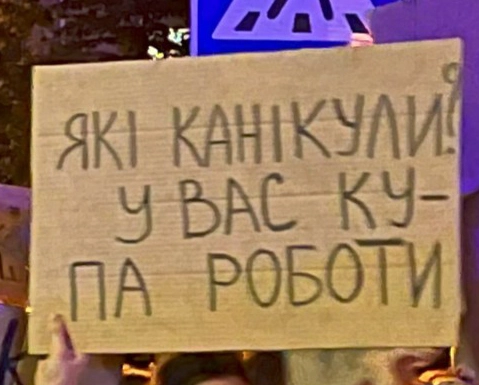 ЯКІ КАНІКУЛИ?
У ВАС КУ-
ПА РОБОТИ